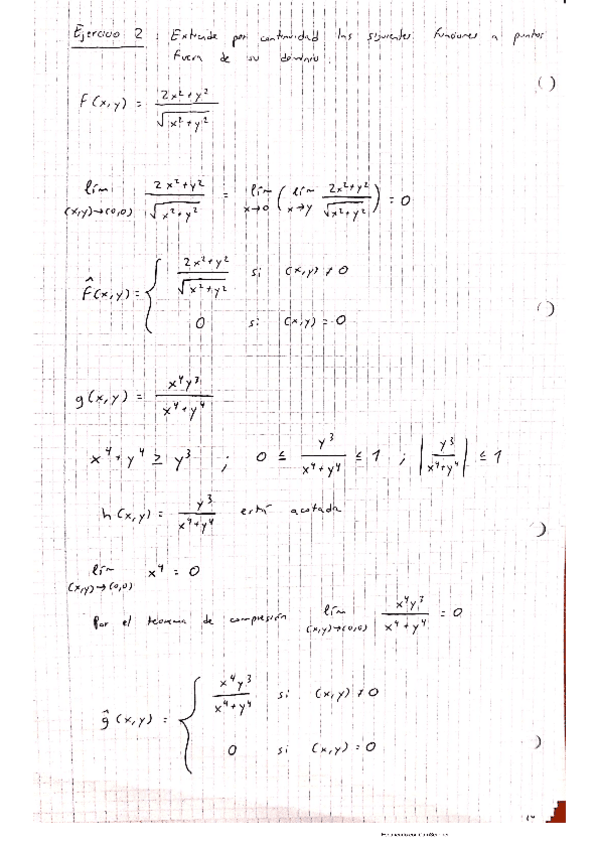 Ejercicio 2 : Extiende por continuidad las siguientes funciones a puntos
fuera de su dominio.
F(x,y) = (2x²+y²)/√(x²+y²)
lím (x,y)→(0,0) (2x²+y²)/√(x²+y²) = lím x→0 ( lím x→y (2x²+y²)/√(x²+y²) ) = 0
F̂(x,y) = { (2x²+y²)/√(x²+y²) si (x,y) ≠ 0
0 si (x,y) = 0
g(x,y) = x⁴y³/(x⁴+y⁴)
x⁴+y⁴ ≥ y³ ; 0 ≤ y³/(x⁴+y⁴) ≤ 1 ; |y³/(x⁴+y⁴)| ≤ 1
h(x,y) = y³/(x⁴+y⁴) está acotada
lím (x,y)→(0,0) x⁴ = 0
Por el teorema de compresión lím (x,y)→(0,0) x⁴y³/(x⁴+y⁴) = 0
ĝ(x,y) = { x⁴y³/(x⁴+y⁴) si (x,y) ≠ 0
0 si (x,y) = 0